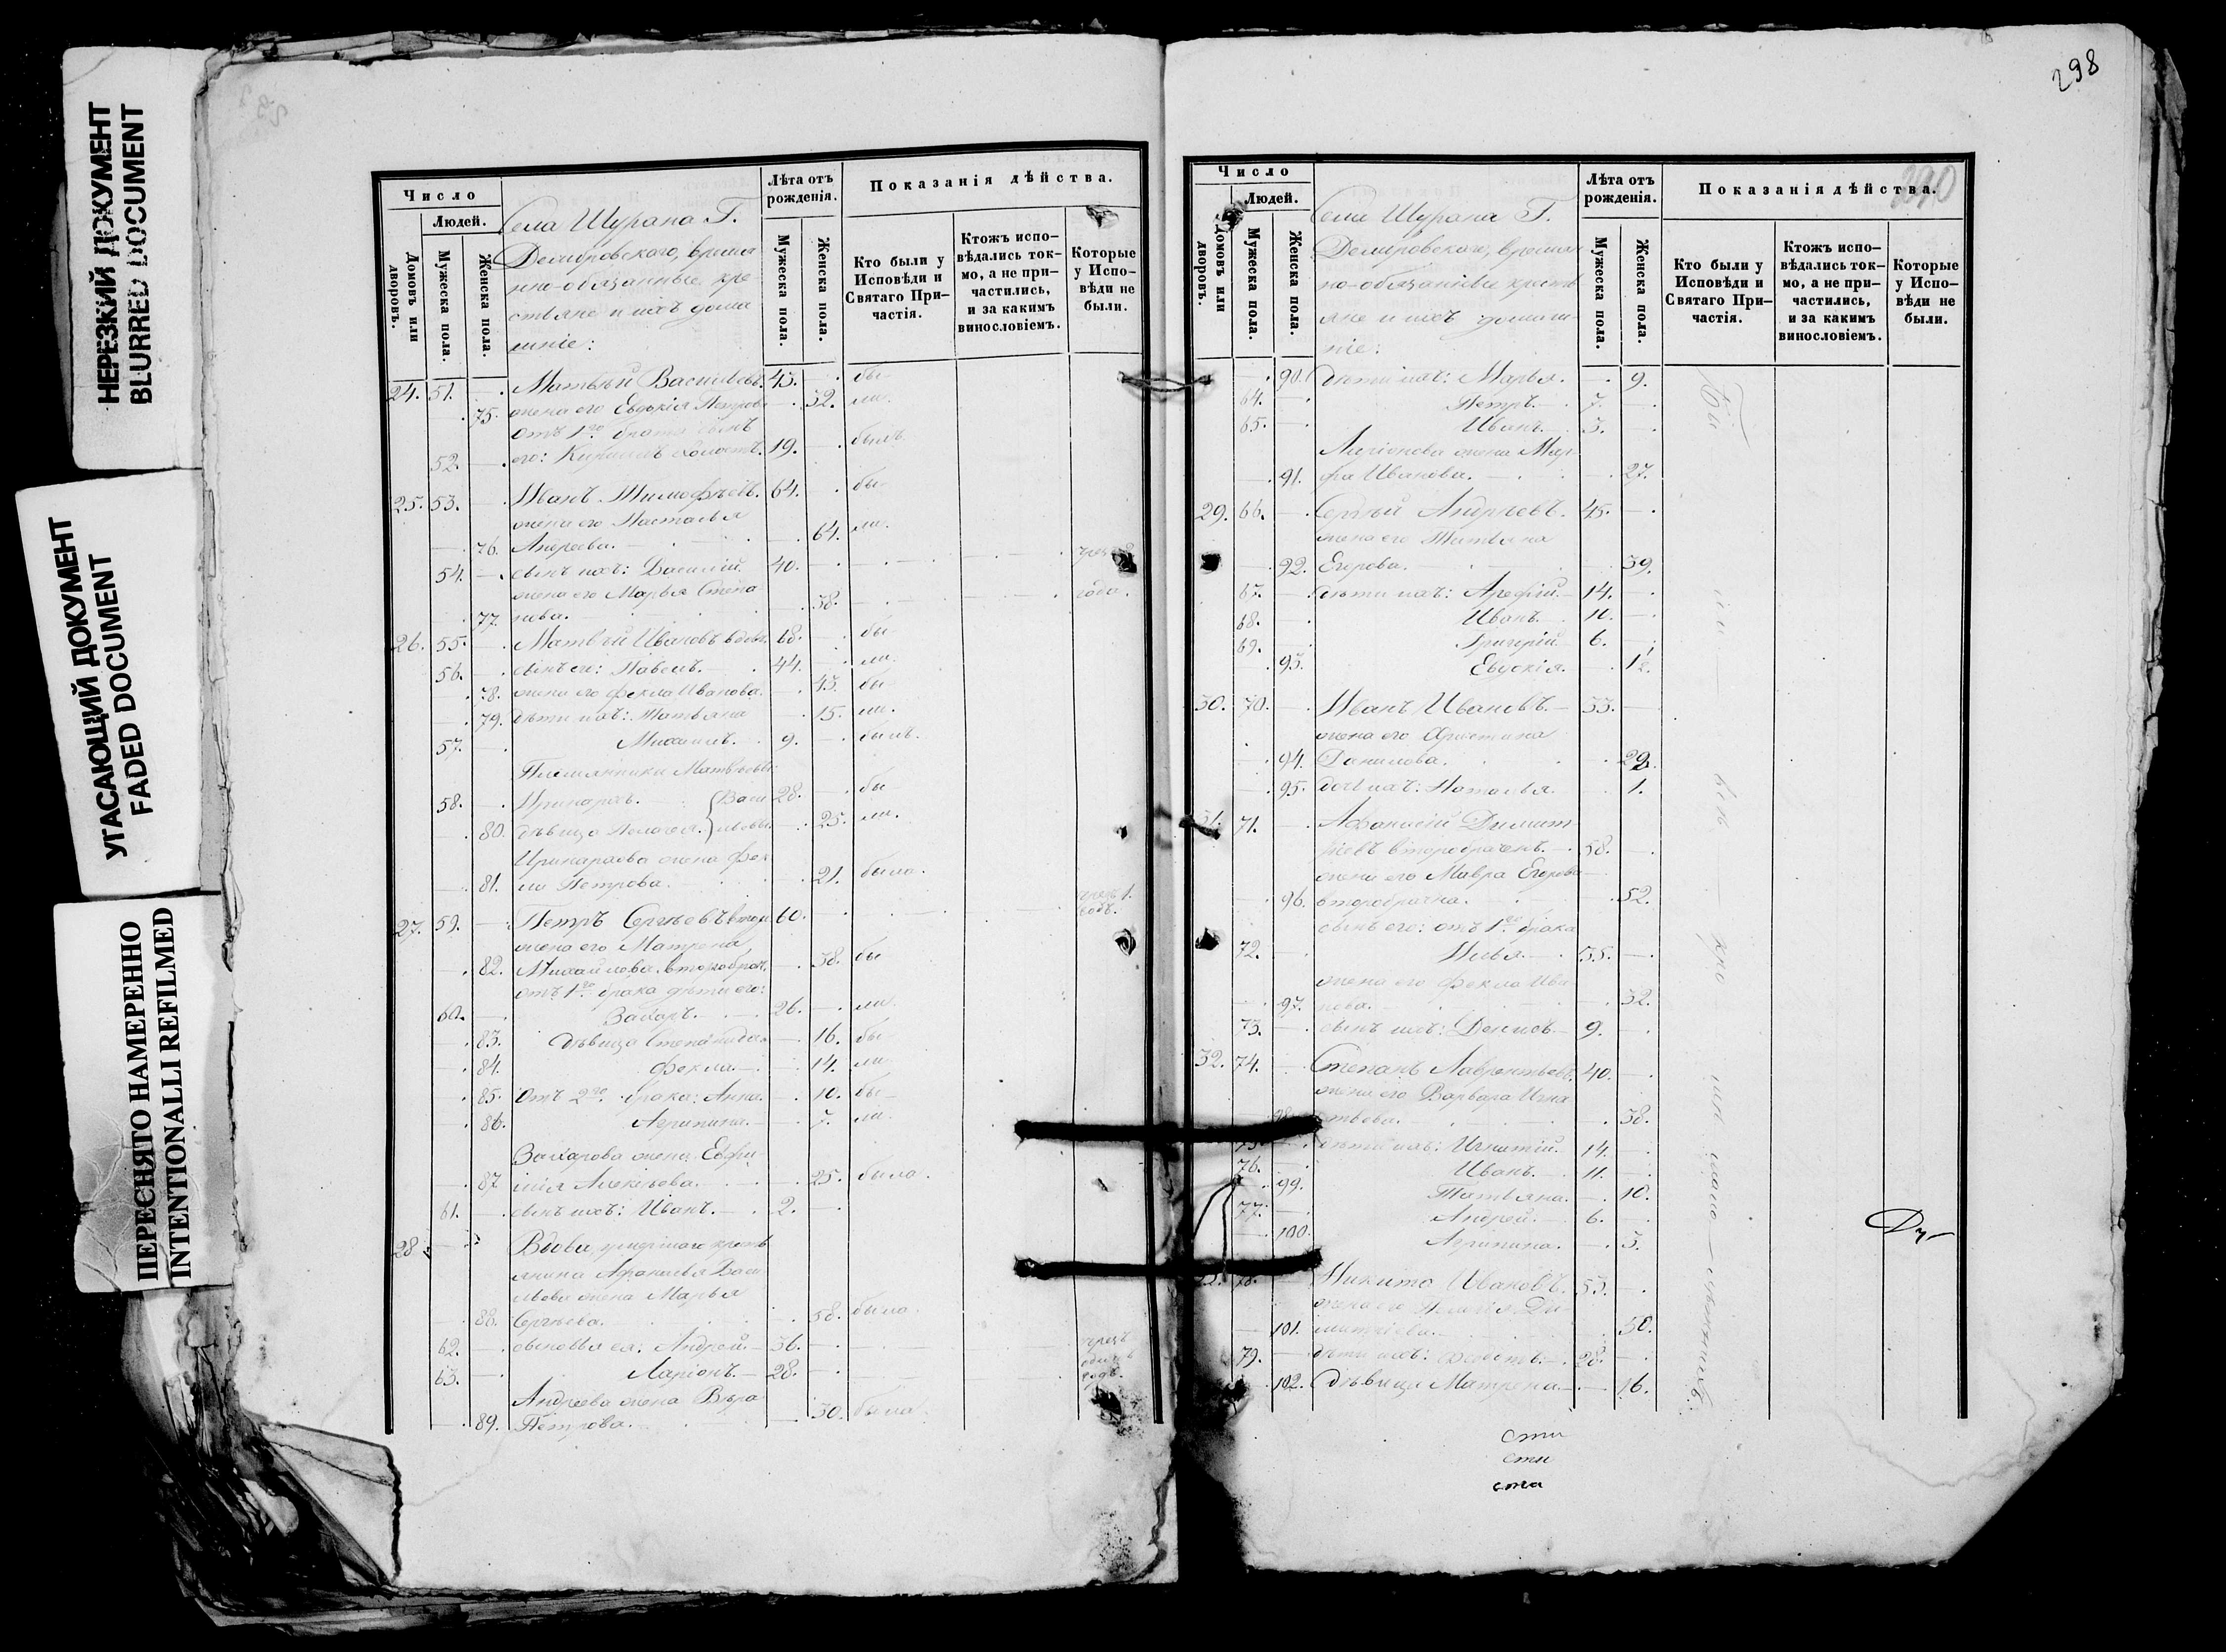 НЕРЕЗКИЙ ДОКУМЕНТ
BLURRED DOCUMENT
УГАСАЮЩИЙ ДОКУМЕНТ
FADED DOCUMENT
ПЕРЕСНЯТО НАМЕРЕННО
INTENTIONALLI REFILMED
Число
Людей.
Домовъ или дворовъ.
Мужеска пола.
Женска пола.
Села Шурана Г.
но-обязанные кре-
стьяне и ихъ дома
шніе:
Лѣта отъ рожденія.
Мужеска пола.
Женска пола.
Показанія дѣйства.
Кто были у Исповѣди и Святаго Причастія.
Ктожъ исповѣдались токмо, а не причастились, и за какимъ винословіемъ.
Которые у Исповѣди не были.
24. 51. — Матвѣй Васильевъ. 43. — бы
75. жена его Евдокія Петрова — 32. ли.
отъ 1го брата сынъ
52. — его: Кириллъ холостъ. 19. — былъ.
25. 53. — Иванъ Тимофѣевъ. 64. — бы
жена его Настасья
76. — 64. ли.
54. — сынъ ихъ: Василій. 40. —
жена его Марья Степа
77. нова. — 38. — года.
26. 55. — Матвѣй Ивановъ вдовъ. 68. — бы
56. — сынъ его: Павелъ. 44. — ли.
78. жена его Фекла Иванова. — 43. бы
79. дѣти ихъ: Татьяна — 15. ли.
57. — Михаилъ. 9. — былъ.
Племянники Матвѣевы:
58. — Иринархъ. Васи 28. — бы
80. дѣвица Пелагея. льевы — 25. ли.
Иринархова жена Фек
81. ла Петрова. — 21. была.
27. 59. — Петръ Сергѣевъ 60. — чрезъ 1. годъ.
жена его Матрена
82. Михайлова второбрач. — 38. бы
отъ 1го брака дѣти его:
60. — Захаръ. 26. — ли.
83. дѣвица Степанида — 16. бы
84. Фекла. — 14. ли
85. отъ 2го брака: Анна. — 10. бы
86. Агрипина. — 7. ли
Захарова жена Евфи
87. мія Алексѣева. — 25. была.
61. — сынъ ихъ: Иванъ. 2. —
28. — Вдова, умершаго кресть
янина Афанасья Васи
льева жена Марья
88. Сергѣева. — 58. была.
62. — сыновья ея: Андрей. 36. — чрезъ
63. — Ларіонъ. 28. — одинъ годъ.
Андреева жена Вѣра
89. Петрова. — 30. была.
298
290
Число
Людей.
Домовъ или дворовъ.
Мужеска пола.
Женска пола.
Села Шурана Г.
но-обязанные кресть
яне и ихъ домаш-
ніе:
Лѣта отъ рожденія.
Мужеска пола.
Женска пола.
Показанія дѣйства.
Кто были у Исповѣди и Святаго Причастія.
Ктожъ исповѣдались токмо, а не причастились, и за какимъ винословіемъ.
Которые у Исповѣди не были.
90. дѣти ихъ: Марья. — 9.
64. — Петръ. 7. —
65. — Иванъ. 3. —
Ларіонова жена Мар
91. фа Иванова. — 27.
29. 66. — Сергѣй Андреевъ. 45. —
жена его Татьяна
92. Егорова. — 39.
67. — дѣти ихъ: Арефій. 14. —
68. — Иванъ. 10. —
69. — Григорій. 6. —
93. Евдокія. —
30. 70. — Иванъ Ивановъ. 33. —
жена его Христина
94. Данилова. — 29.
95. дочь ихъ: Наталья. — 1.
31. 71. — Афанасій Димит
ріевъ второбраченъ. 58. —
жена его Мавра Егорова
96. второбрачна. — 52.
сынъ его: отъ 1го брака
72. — Илья. —
жена его Фекла Ива
97. нова. — 32.
73. — сынъ ихъ: Денисъ. 9. —
32. 74. — Степанъ Лаврентьевъ. 40. —
жена его Варвара Игна
98. тьева. — 38.
75. — дѣти ихъ: Игнатій. 14. —
76. — Иванъ. 11. —
99. Татьяна. — 10.
77. — Андрей. 6. —
100. Агрипина. — 3.
78. — Никита Ивановъ. 53. —
жена его Пелагея Ди
101. митріева. — 50.
79. — дѣти ихъ: 28. —
102. дѣвица Матрена. — 16.